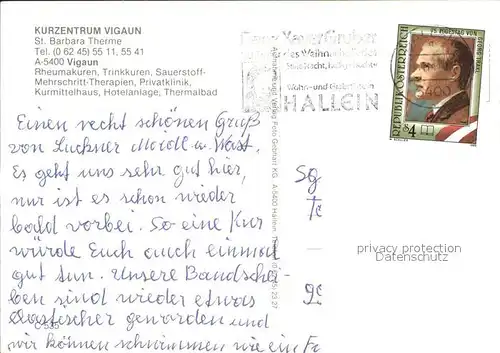 KURZENTRUM VIGAUN
St. Barbara Therme
Tel. (0 62 45) 55 11, 55 41
A-5400 Vigaun
Rheumakuren, Trinkkuren, Sauerstoff-
Mehrschritt-Therapien, Privatklinik,
Kurmittelhaus, Hotelanlage, Thermalbad
Franz Xaver Gruber
des Weihnachtsliedes
Wohn- und
HALLEIN
REPUBLIK ÖSTERREICH
75. TODESTAG VON
GEORG TRAKL
S4
5400
Einen recht schönen Gruß
von Luckner
Es geht uns sehr gut hier,
nur ist es schon wieder
bald vorbei. So eine Kur
würde Euch auch einmal
gut tun. Unsere Bandschei-
ben sind wieder etwas
elastischer geworden und
wir können schwimmen wie ein
Verlag Foto Gebhart KG A-5400 Hallein
C 535
privacy protection
Datenschutz